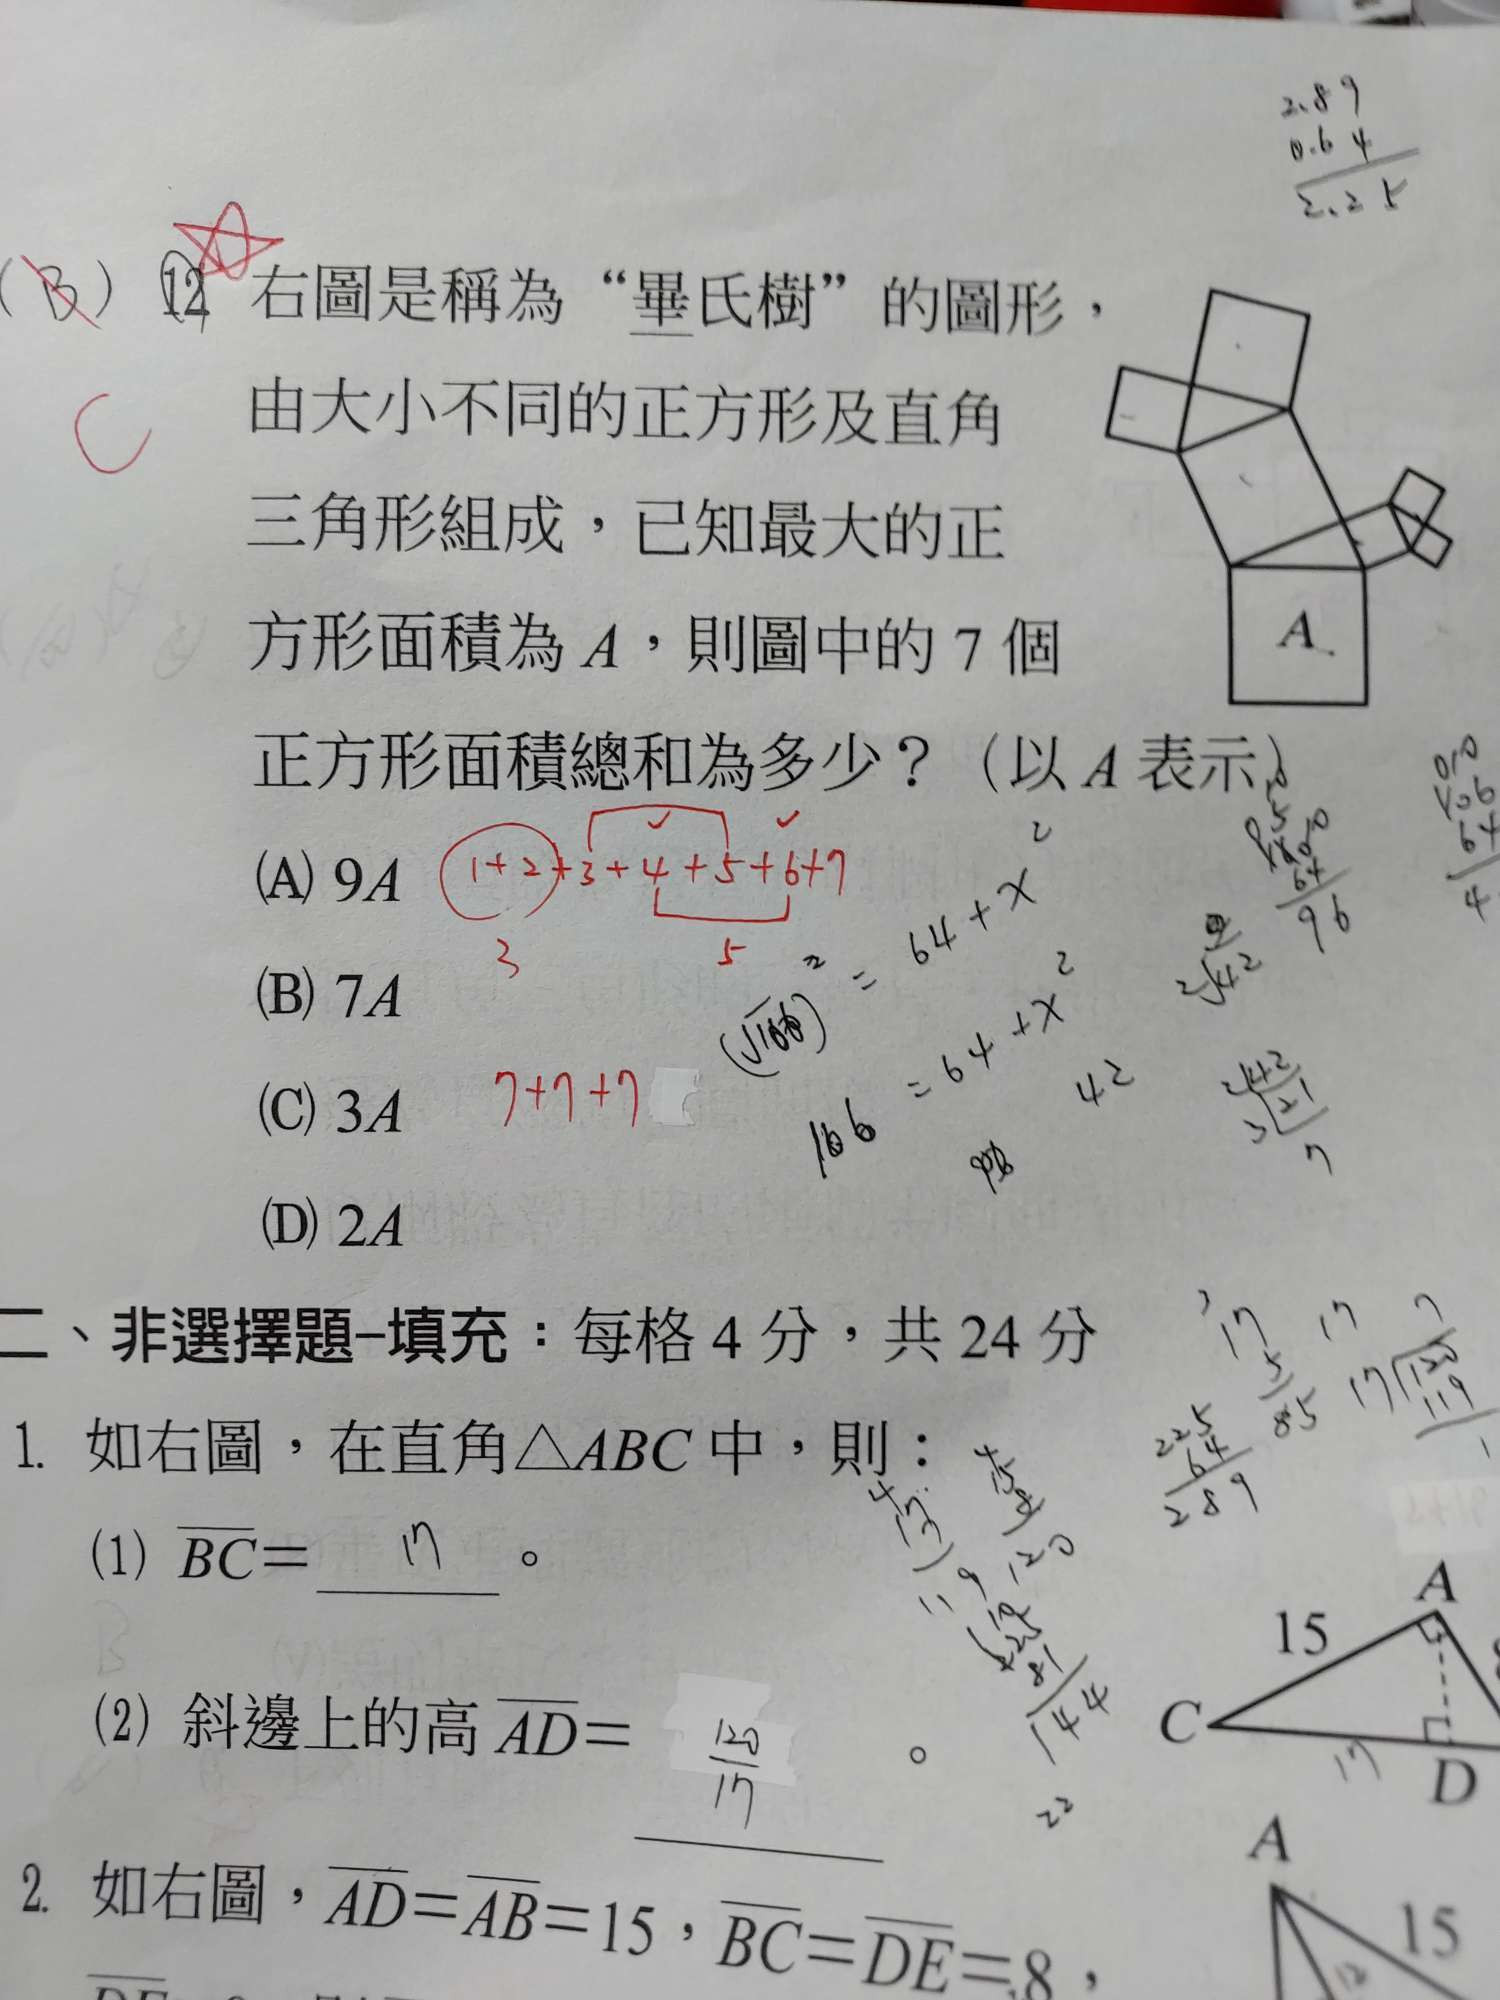 2.89
0.64
2.25
(B) 12 右圖是稱為“畢氏樹”的圖形，
C
由大小不同的正方形及直角
三角形組成，已知最大的正
方形面積為 A，則圖中的 7 個
A
正方形面積總和為多少？（以 A 表示）
(A) 9A
1+2+3+4+5+6+7
3
5
(B) 7A
64+x²
=64+x²
166
42
96
(C) 3A
7+7+7
(D) 2A
二、非選擇題–填充：每格 4 分，共 24 分
17
5
85
17
225
64
289
1. 如右圖，在直角△ABC 中，則：
(1) BC= 17 。
120
81
144
22
A
15
C
17
D
(2) 斜邊上的高 AD= 120/17 。
2. 如右圖，AD=AB=15，BC=DE=8，
A
15
12